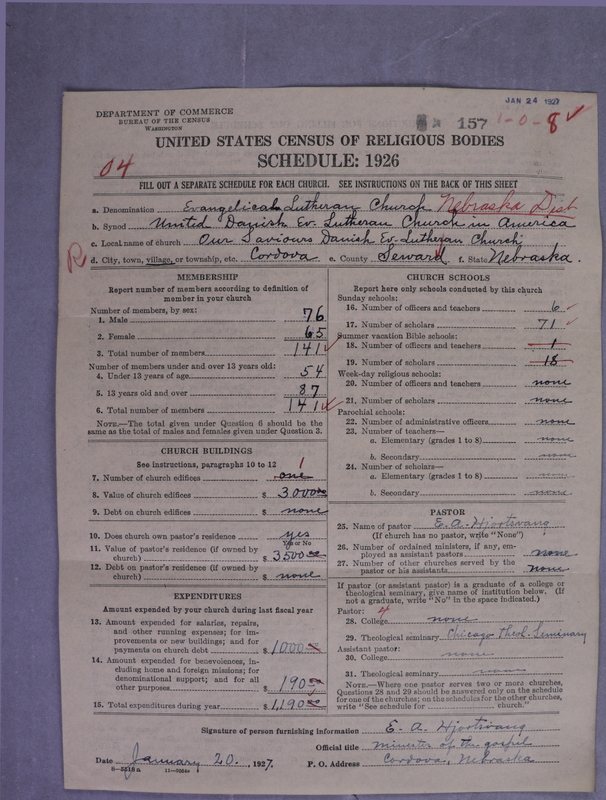 JAN 24 1927
DEPARTMENT OF COMMERCE
BUREAU OF THE CENSUS
WASHINGTON
157 1-0-8
UNITED STATES CENSUS OF RELIGIOUS BODIES
04
SCHEDULE: 1926
FILL OUT A SEPARATE SCHEDULE FOR EACH CHURCH. SEE INSTRUCTIONS ON THE BACK OF THIS SHEET
a. Denomination Evangelical Lutheran Church Nebraska Dist
b. Synod United Danish Ev. Lutheran Church in America
c. Local name of church Our Saviours Danish Ev. Lutheran Church
R d. City, town, village, or township, etc. Cordova e. County Seward f. State Nebraska.
MEMBERSHIP
Report number of members according to definition of
member in your church
Number of members, by sex:
1. Male 76
2. Female 65
3. Total number of members 141
Number of members under and over 13 years old:
4. Under 13 years of age 54
5. 13 years old and over 87
6. Total number of members 141
NOTE.—The total given under Question 6 should be the
same as the total of males and females given under Question 3.
CHURCH BUILDINGS
See instructions, paragraphs 10 to 12 1
7. Number of church edifices one
8. Value of church edifices $ 3000 00
9. Debt on church edifices $ none
10. Does church own pastor's residence yes
Yes or No
11. Value of pastor's residence (if owned by
church) $ 3500 00
12. Debt on pastor's residence (if owned by
church) $ none
EXPENDITURES
Amount expended by your church during last fiscal year
13. Amount expended for salaries, repairs,
and other running expenses; for im-
provements or new buildings; and for
payments on church debt $ 1000
14. Amount expended for benevolences, in-
cluding home and foreign missions; for
denominational support; and for all
other purposes $ 190
15. Total expenditures during year $ 1,190
CHURCH SCHOOLS
Report here only schools conducted by this church
Sunday schools:
16. Number of officers and teachers 6
17. Number of scholars 71
Summer vacation Bible schools:
18. Number of officers and teachers 1
19. Number of scholars 18
Week-day religious schools:
20. Number of officers and teachers none
21. Number of scholars none
Parochial schools:
22. Number of administrative officers none
23. Number of teachers—
a. Elementary (grades 1 to 8) none
b. Secondary none
24. Number of scholars—
a. Elementary (grades 1 to 8) none
b. Secondary none
PASTOR
25. Name of pastor E. A. Hjortsvang
(If church has no pastor, write "None")
26. Number of ordained ministers, if any, em-
ployed as assistant pastors none
27. Number of other churches served by the
pastor or his assistants none
If pastor (or assistant pastor) is a graduate of a college or
theological seminary, give name of institution below. (If
not a graduate, write "No" in the space indicated.)
Pastor:
28. College none
29. Theological seminary Chicago Theol. Seminary
Assistant pastor:
30. College none
31. Theological seminary none
NOTE.—Where one pastor serves two or more churches,
Questions 28 and 29 should be answered only on the schedule
for one of the churches; on the schedules for the other churches,
write "See schedule for church."
Signature of person furnishing information E. A. Hjortsvang
Official title minister of the gospel
Date January 20, 1927. P. O. Address Cordova, Nebraska
8—5518a